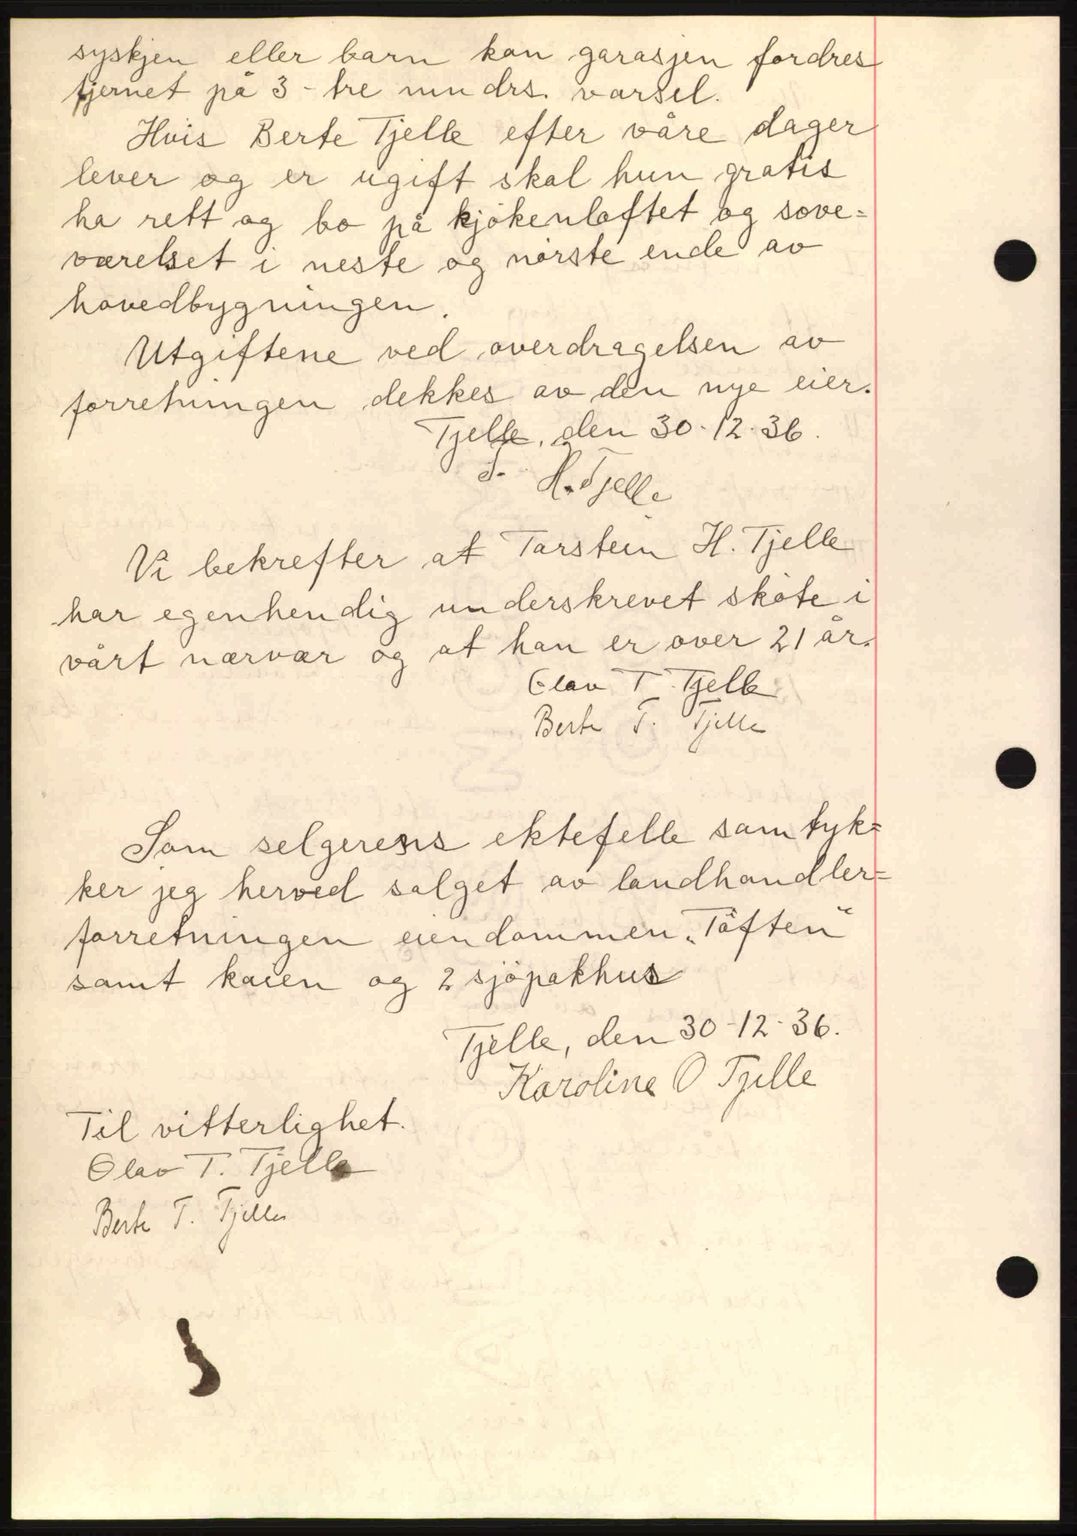 syskjen eller barn kan garasjen fordres
fjernet på 3 - tre mndrs. varsel.
Hvis Berte Tjelle efter våre dager
lever og er ugift skal hun gratis
ha rett og bo på kjökenloftet og sove=
værelset i neste og nörste ende av
hovedbygningen.
Utgiftene ved overdragelsen av
forretningen dekkes av den nye eier.
Tjelle, den 30-12-36.
T. H. Tjelle
Vi bekrefter at Torstein H. Tjelle
har egenhendig underskrevet sköte i
vårt nærvær og at han er over 21 år.
Olav T. Tjelle
Berte T. Tjelle
Som selgerens ektefelle samtyk=
ker jeg herved salget av landhandler=
forretningen eiendommen „Töften“
samt kaien og 2 sjöpakhus
Tjelle, den 30-12-36.
Karoline O Tjelle
Til vitterlighet.
Olav T. Tjelle
Berte T. Tjelle